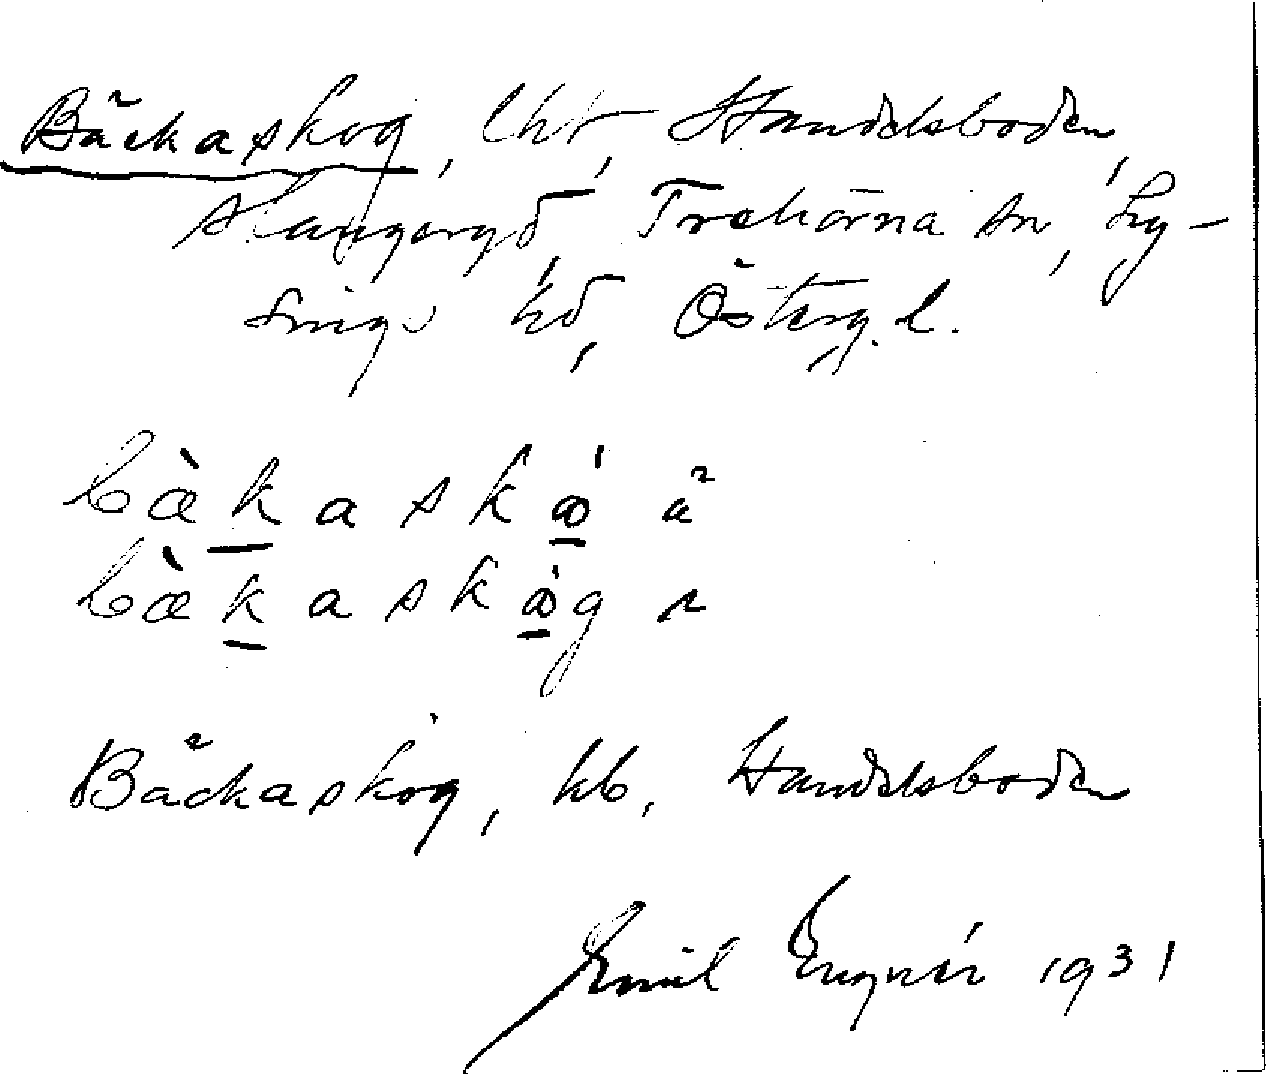 Bäckaskog, lht, Handelsboden,
Slangeryd, Trehörna sn, Ly-
sings hd, Österg. l.
bæ̀kaskώ ä
bæ̀kaskώg
Bäckaskog, kb, Handelsboden
Emil Engnér 1931